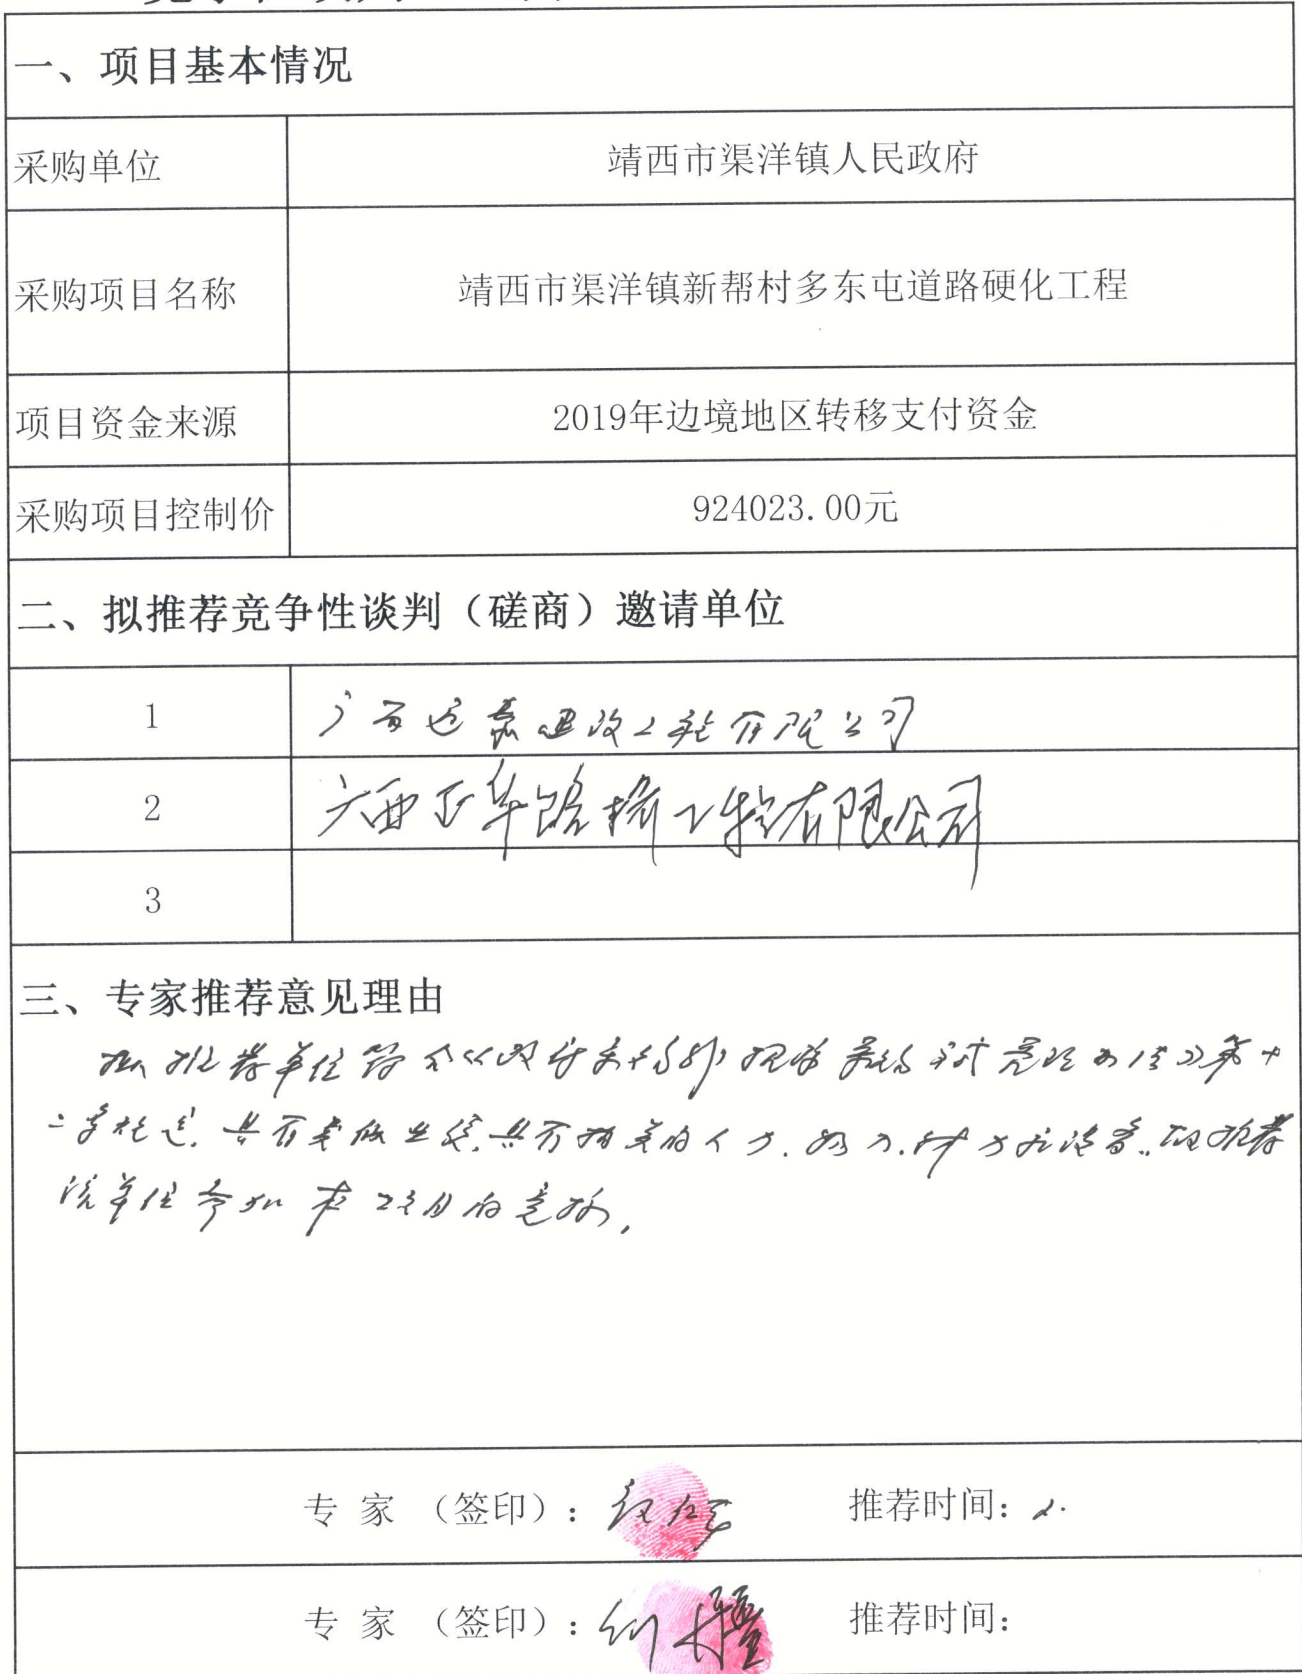 一、项目基本情况
采购单位 靖西市渠洋镇人民政府
采购项目名称 靖西市渠洋镇新帮村多东屯道路硬化工程
项目资金来源 2019年边境地区转移支付资金
采购项目控制价 924023.00元
二、拟推荐竞争性谈判（磋商）邀请单位
1 广西 建设工程有限公司
2 广西正华路桥工程有限公司
3
三、专家推荐意见理由
拟推荐单位符合《政府采购 》第十
二条规定.具有 业绩.具有 的人力.物力.财力和设备.故推荐
该单位参加本项目的竞标.
专 家 （签印）： 推荐时间：
专 家 （签印）： 推荐时间：